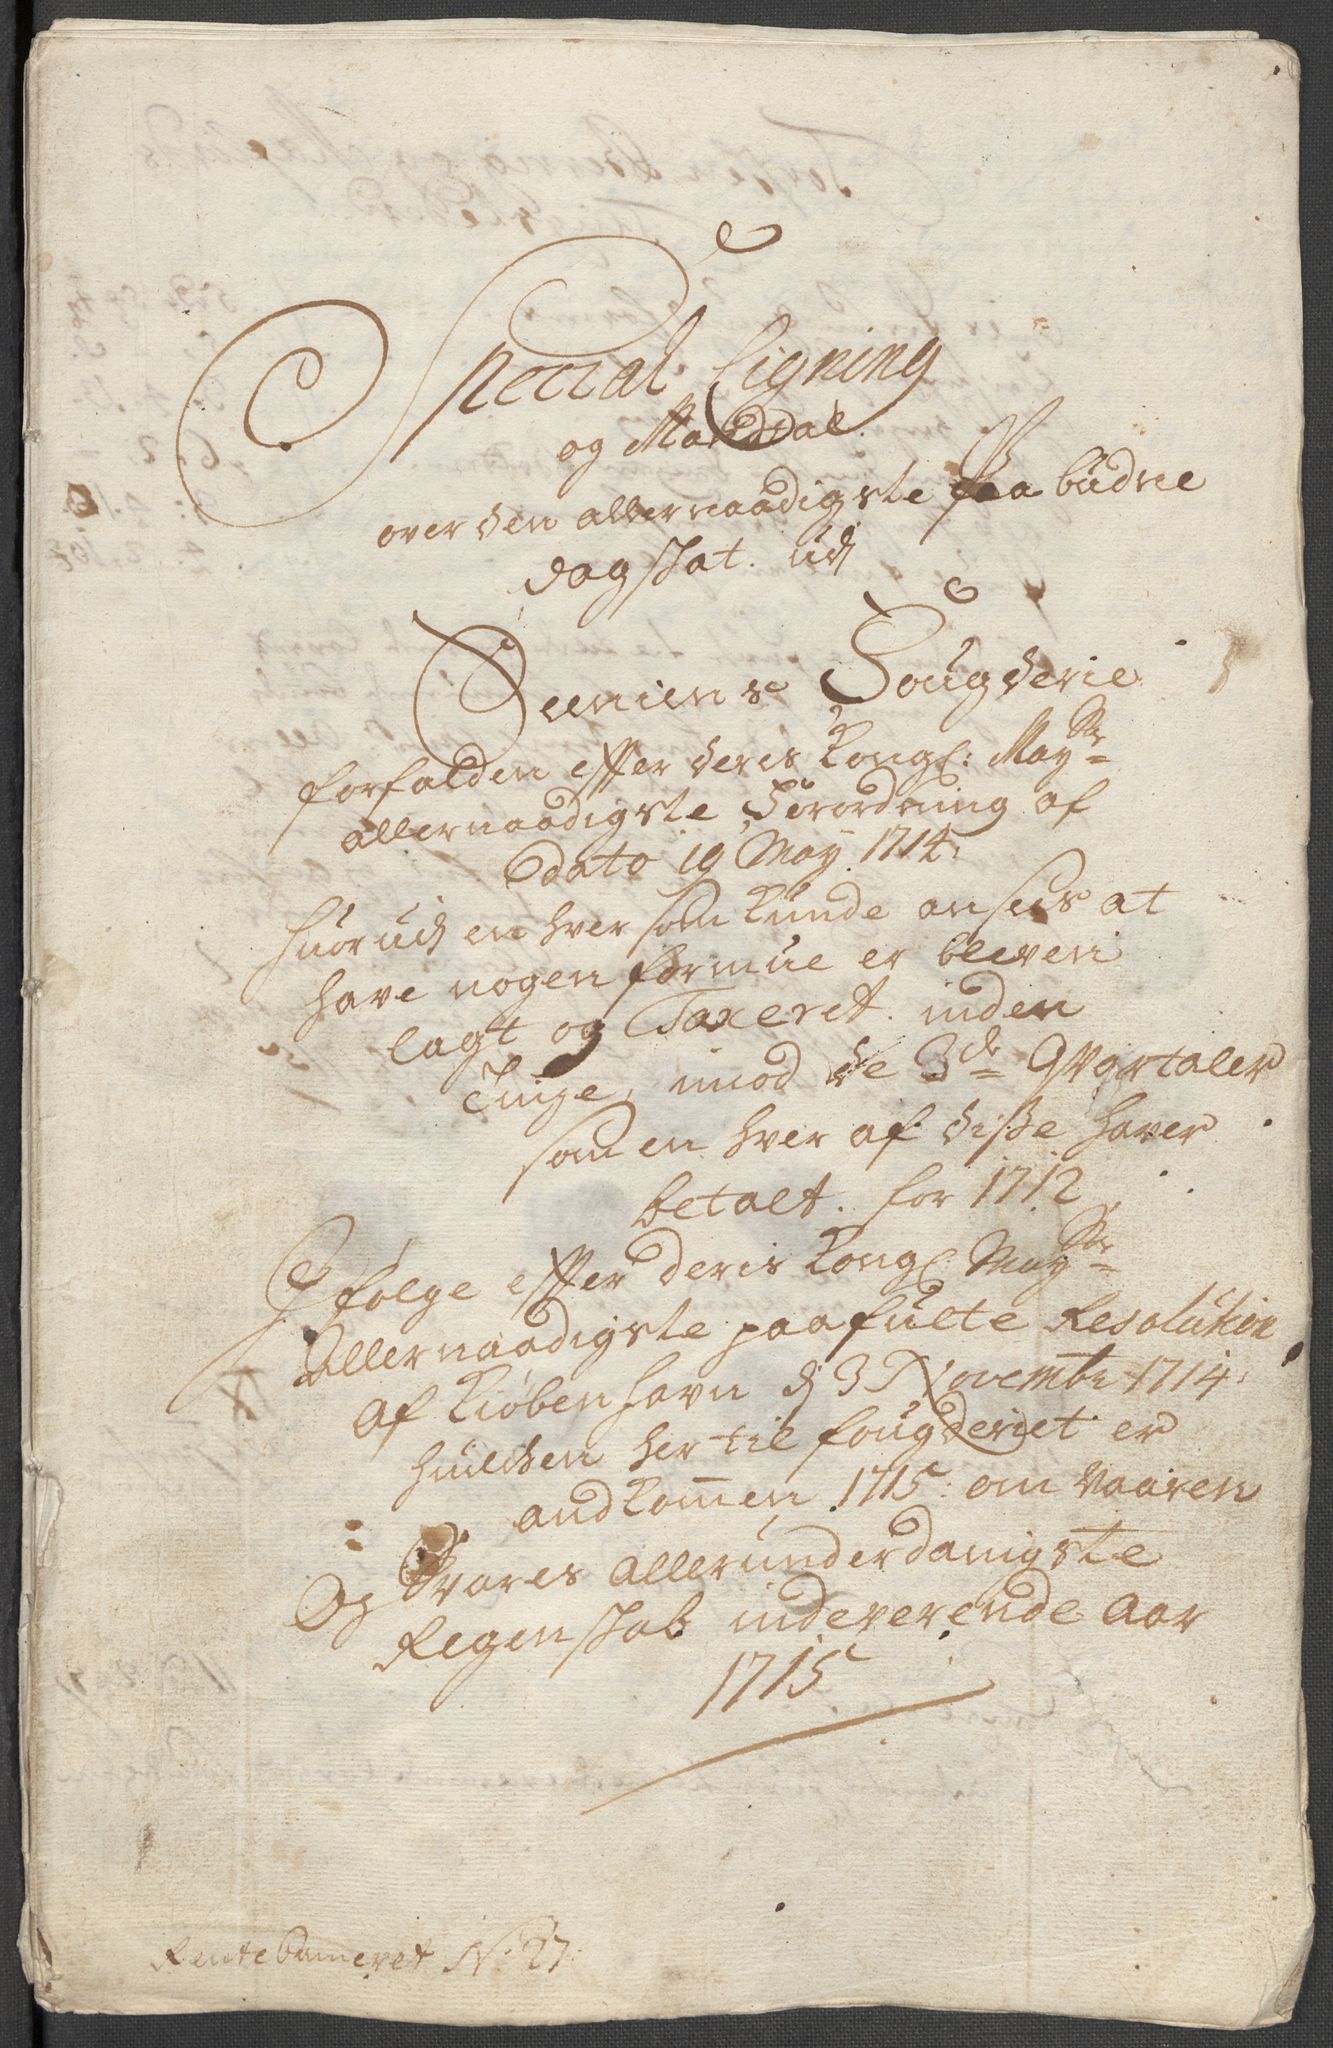 Special Ligning
og Mandtal
over den allernaadigste paabudne
dagskat. udj
Seeniens Fougderie
forfalden effter deris Kongl: Mayts
allernaadigste Forordning af
dato 19 May 1714:
huorudj en hver som kunde ansees at
have nogen formue er bleven
lagt og Taxeret. inden
Tinge, imod de 3de Qvartaler
som en hver af disse haver
betalt. for 1712
J følge effter deris Kongl Mayts
Allernaadigste paafulte Resolution
af Kiøbenhavn dj 3 Novembr 1714:
huilcken her til fougderiet er
andkommen 1715: om Vaaren
Og Svares allerunderdanigste
Regenskab indeverende Aar
1715
Rentekameret No 27.